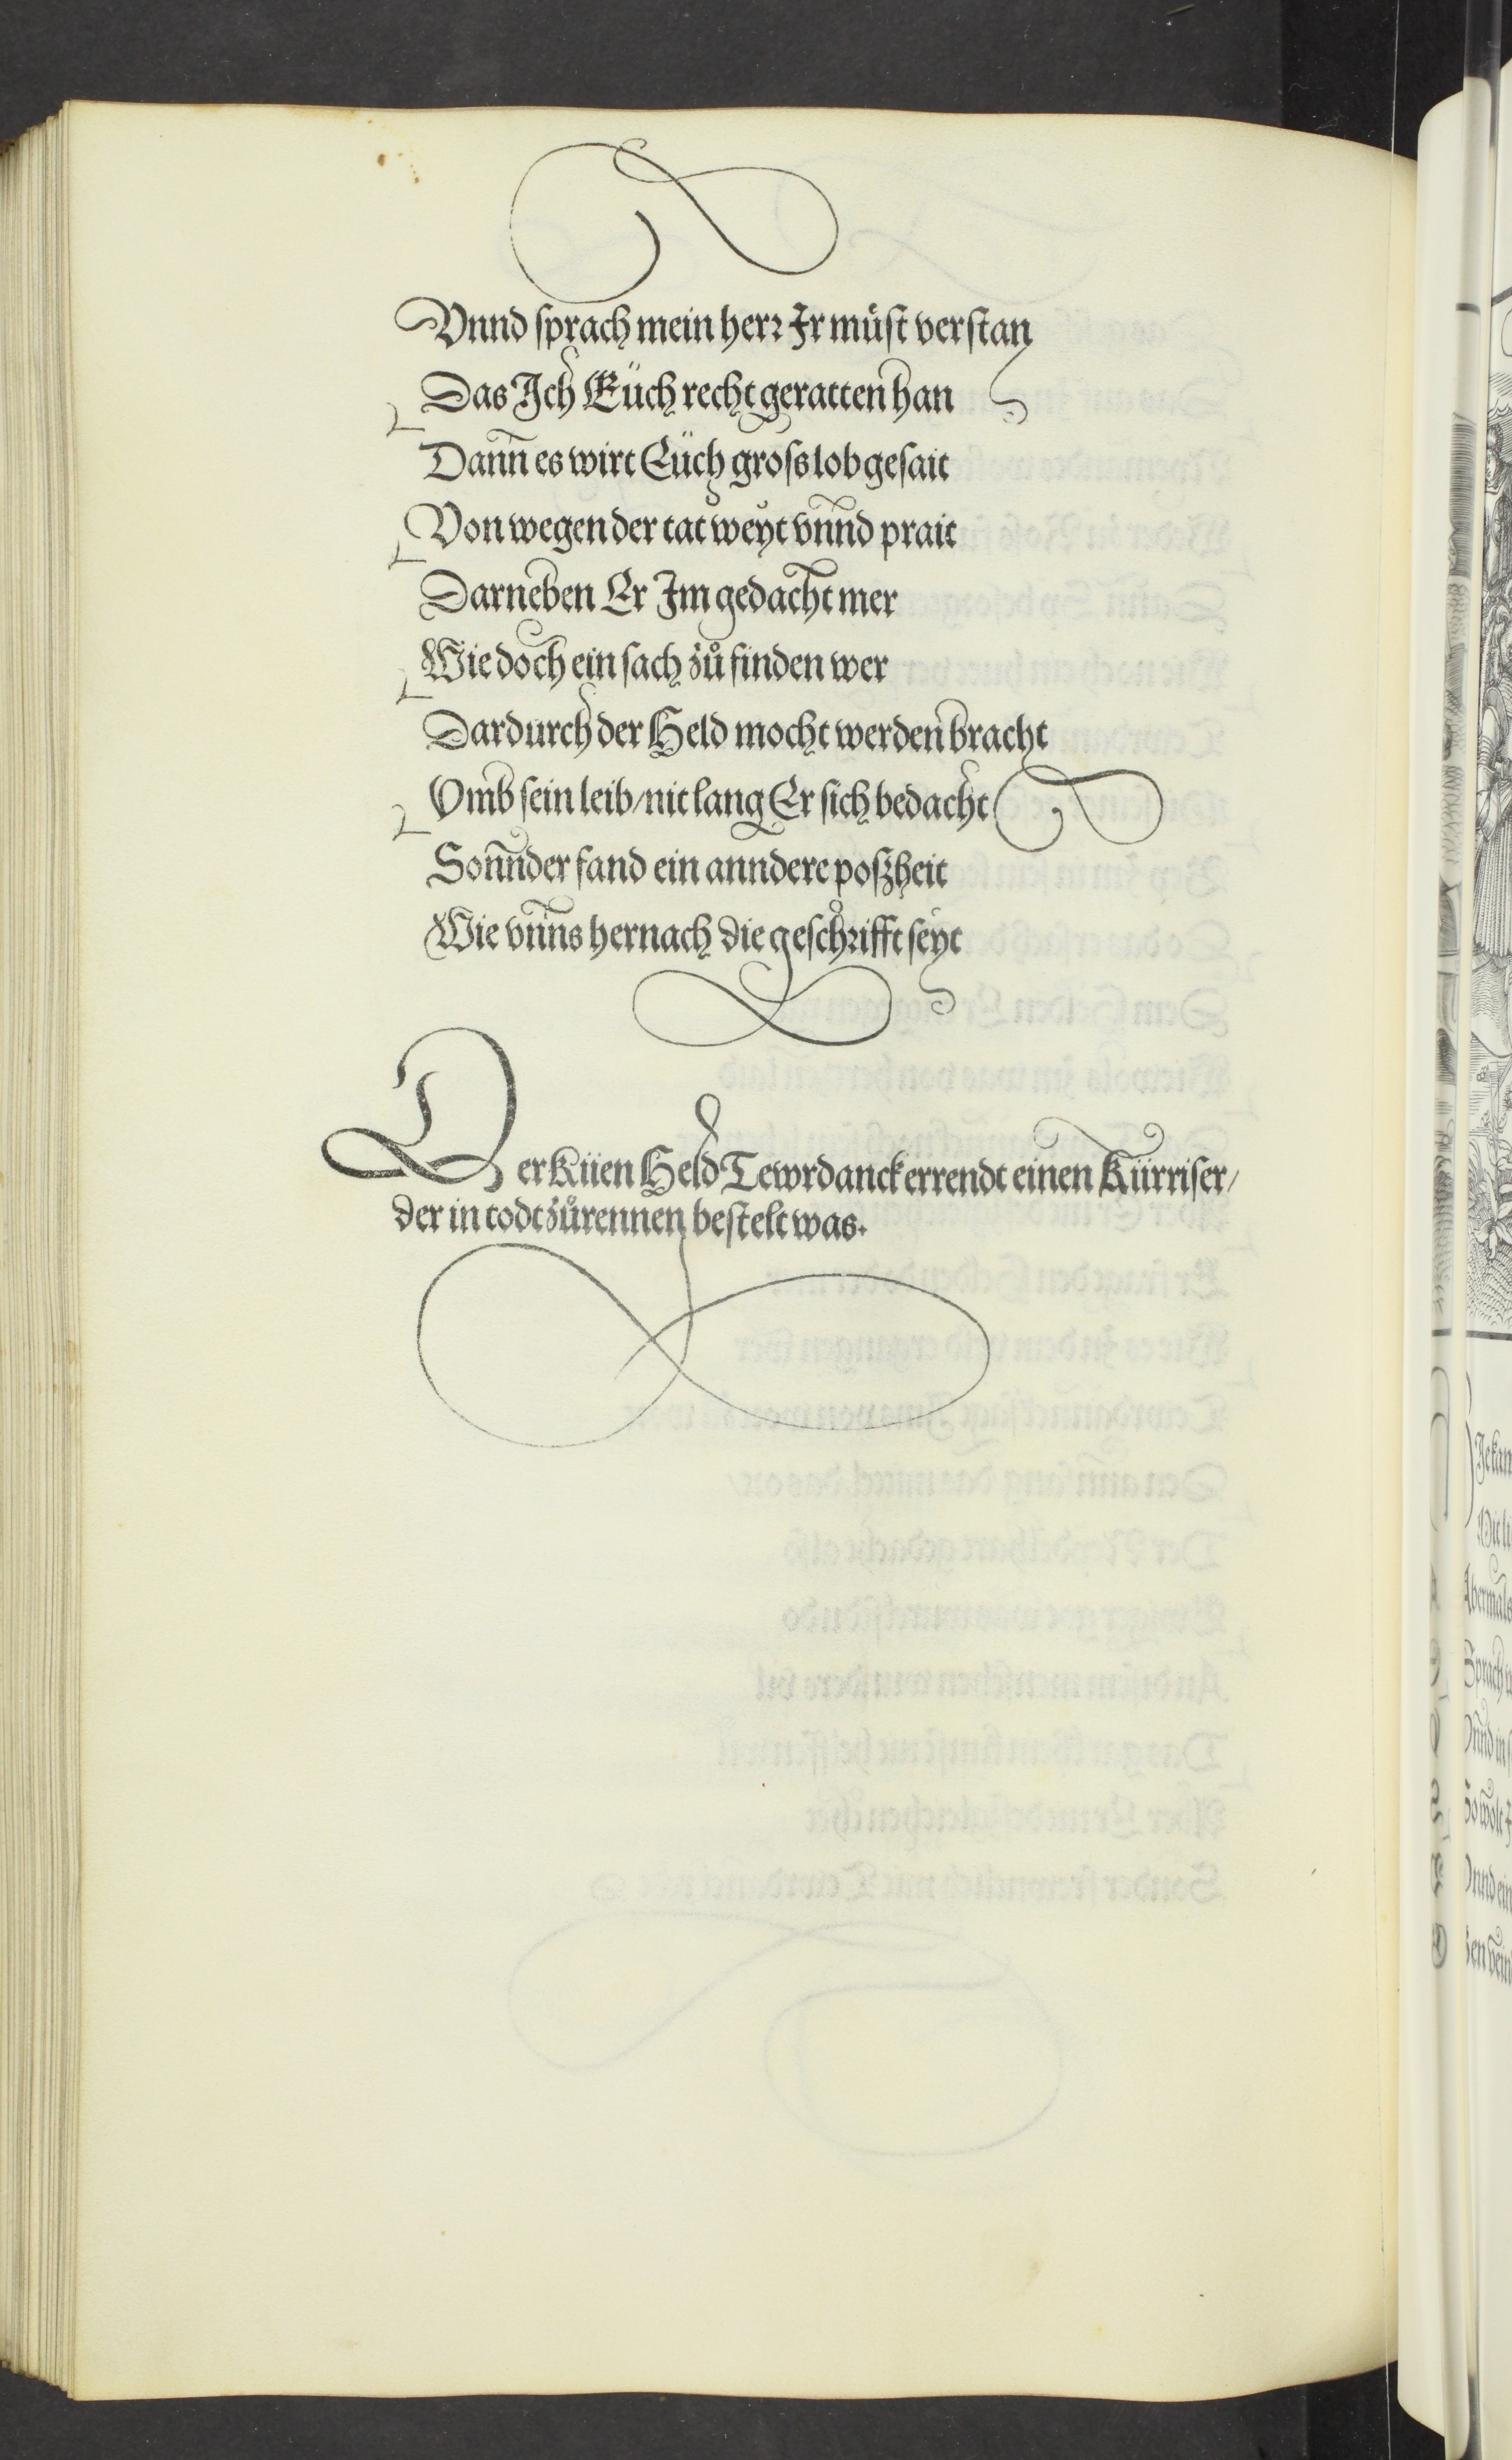 Vnnd sprach mein herr Ir müst verstan
Das Ich Eüch recht geratten han
Dann̄ es wirt Eüch gross lob gesait
Von wegen der tat weyt vnnd prait
Darneben Er Im gedacht mer
Wie doch ein sach zů finden wer
Dardurch der Held mocht werden bracht
Vmb sein leib/nit lang Er sich bedacht
Sonnder fand ein anndere poßheit
Wie vnns hernach die geschrifft seyt
Der Küen Held Tewrdanck errendt einen Kürriser/
der in todt zůrennen bestelt was.